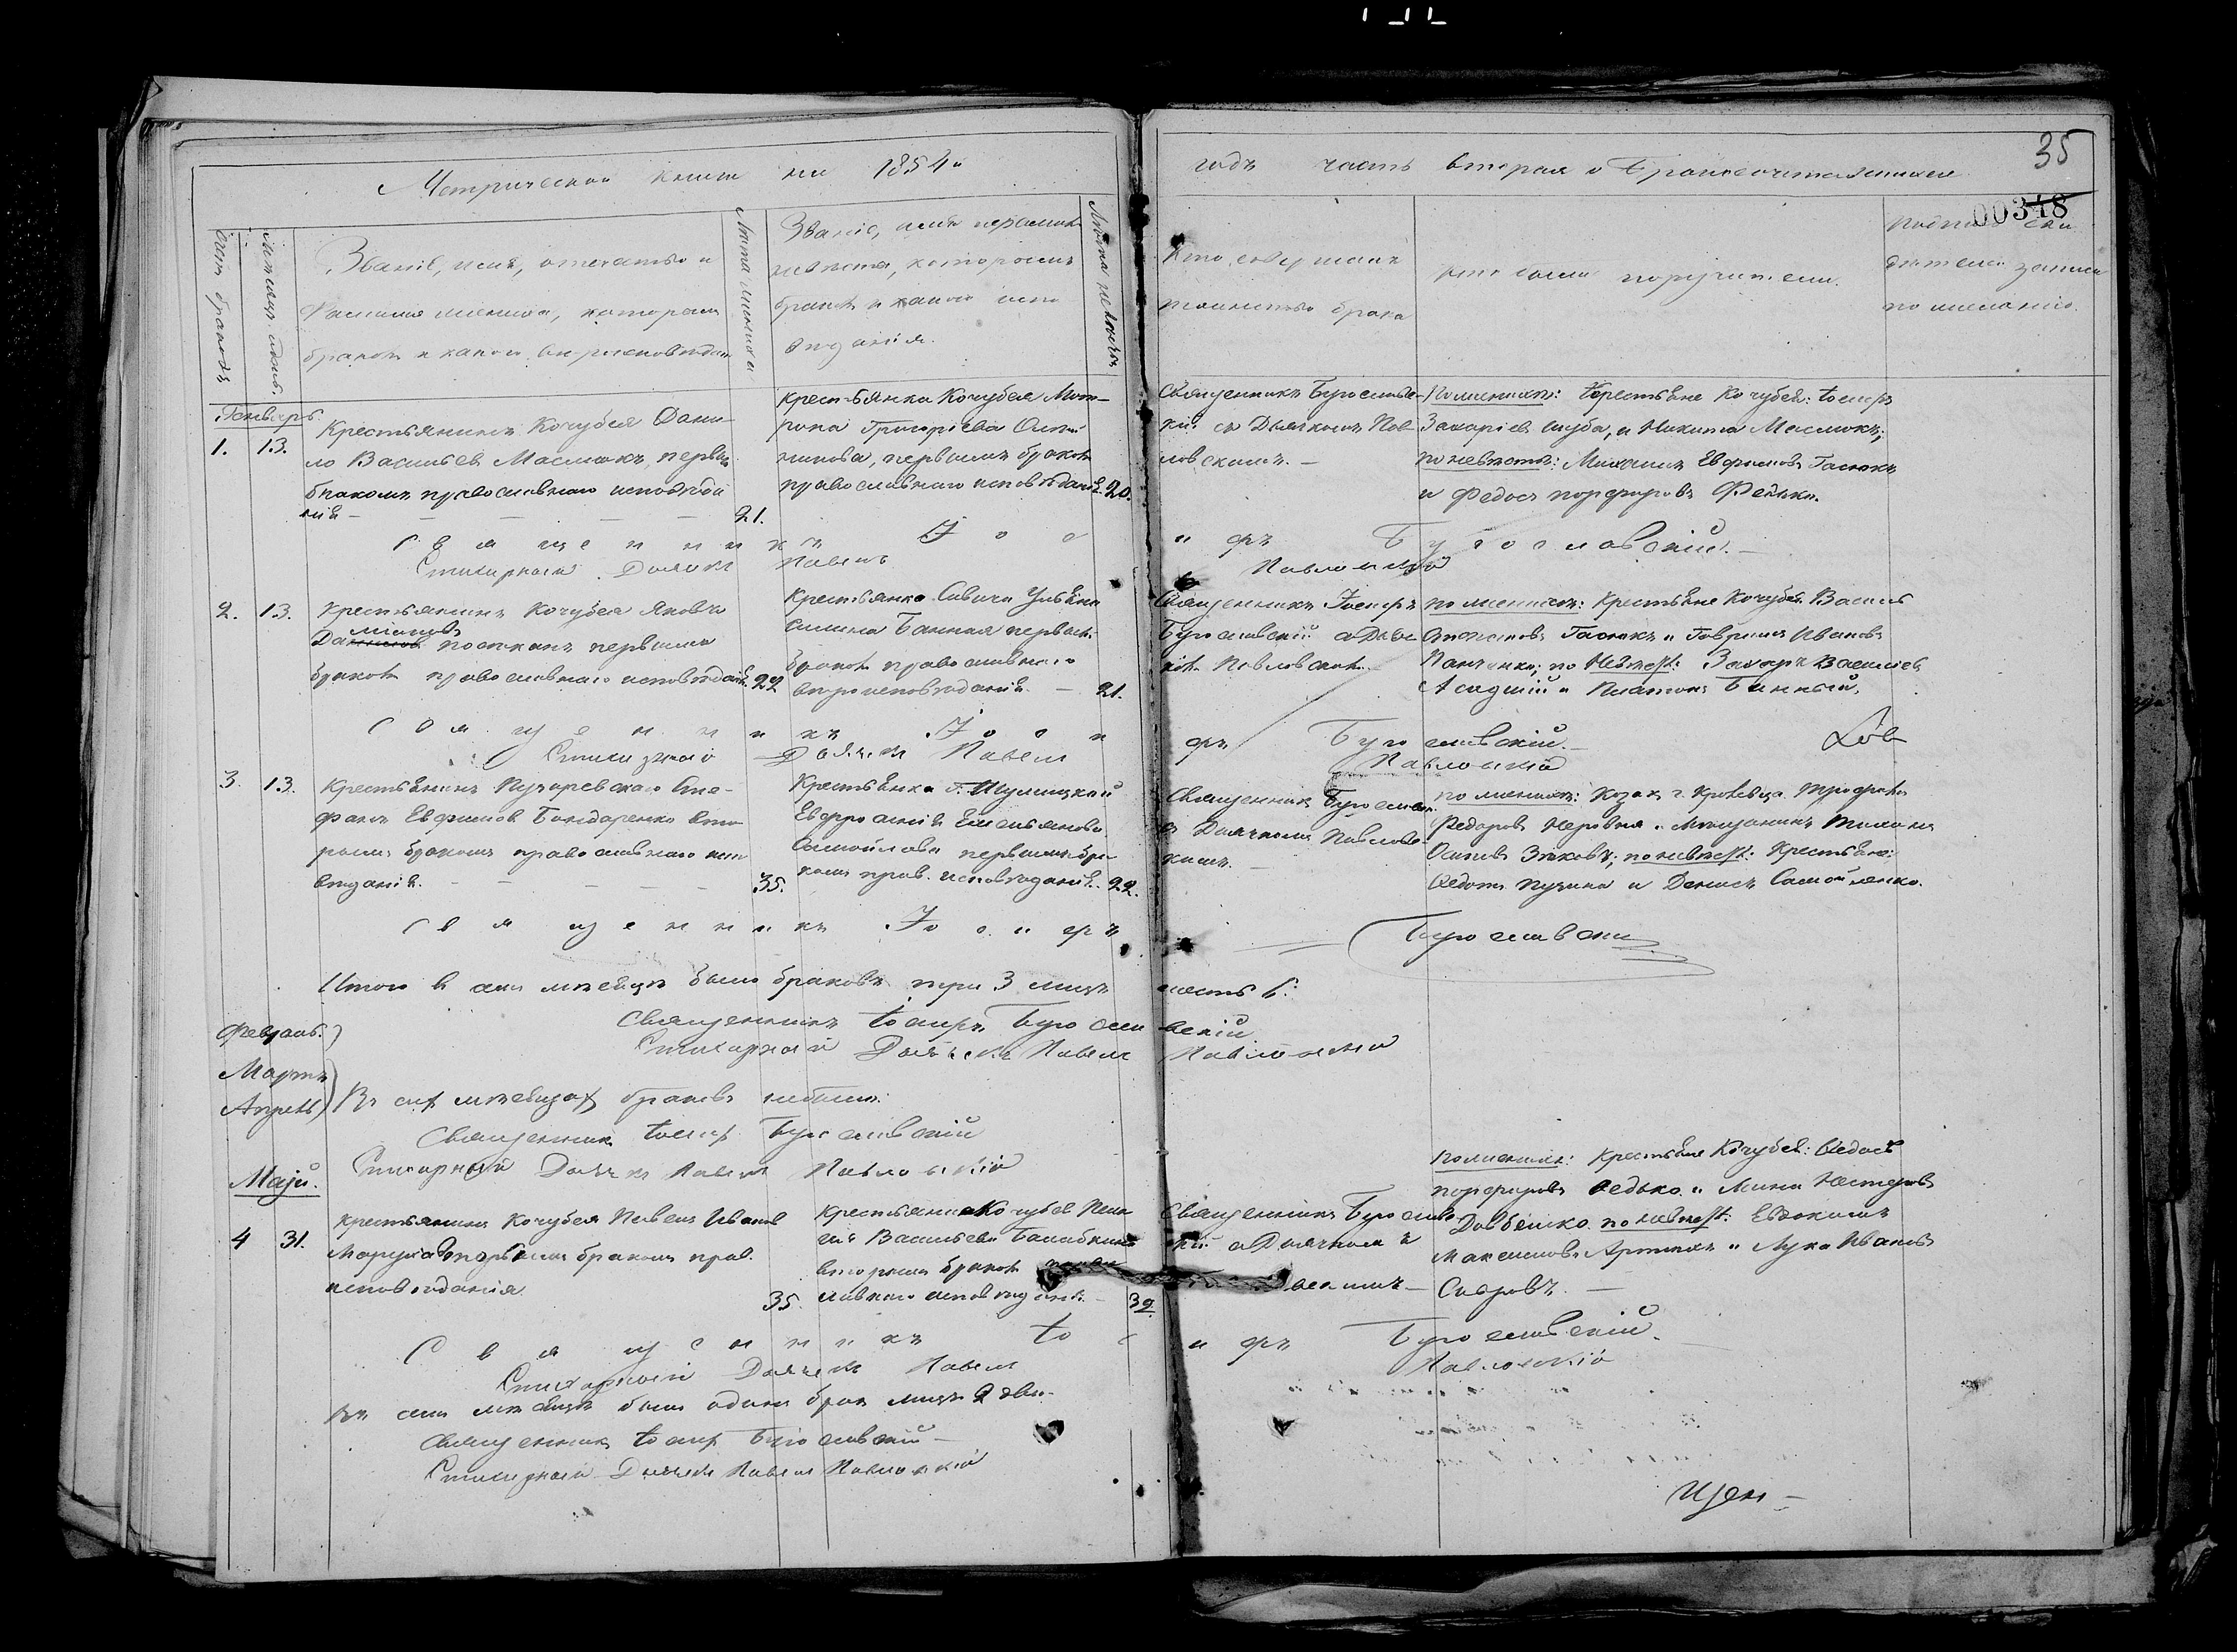 35
00348
Метрическая книга на 1854й годъ часть вторая о бракосочетавшихся
Счетъ браковъ
Мѣсяцъ и день.
Званіе, имя, отчество и
фамилия жениха, которымъ
бракомъ и какого вѣроисповѣдан
Лѣта жениха
Званіе, имя
невѣсты, которымъ
бракомъ и какого испо
вѣданія.
Лѣта невѣсты
Кто совершалъ
таинство брака
кто были поручители.
дѣтелей записи
по желанію.
Генварь.
1. 13.
Крестьянинъ Кочубея Дани-
ло Васильевъ Маслюкъ, первым
бракомъ православнаго исповѣда
нія — 21.
Крестьянка Кочубея Мат-
рона Григоріева
первымъ бракомъ
православнаго исповѣданія. 20.
Священникъ Бугославс-
кій съ Дьячкомъ Пав-
ловскимъ. —
По женихѣ: Крестьяне Кочубея: Іосифъ
Захаріевъ Шуба, и Никита Маслюкъ;
по невѣстѣ: Михаилъ Евфимовъ Гасюкъ
и Федосъ Порфировъ Федько.
Священникъ Іосифъ Бугославскій. —
Стихарный Дьячекъ Павелъ Павловскій
2. 13.
Крестьянинъ Кочубея Яковъ
Даміановъ первымъ
бракомъ православнаго исповѣданія. 22
Крестьянка Савича Ульяна
Банная первымъ
бракомъ православнаго
вѣроисповѣданія. — 21.
Священникъ Іосифъ
Бугославскій съ Дьяч
ком Павловским.
по женихѣ: Крестьяне Кочубея Василь
Гасюкъ и Гавриилъ Ивановъ
Панченко; по невѣстѣ: Захаръ Васильев
и Платонъ Банный.
Священникъ Іосифъ Бугославскій. —
Стихарный Дьячекъ Павелъ Павловскій
3. 13.
Крестьянинъ Сте-
фанъ Евфимов Бондаренко вто
рымъ бракомъ православнаго испо
вѣданія. — 35.
Крестьянка Г.
Евфросинія Емельянова
Самойлова первымъ бра-
комъ прав. исповѣданія. 22.
Священник Бугославск.
съ Дьячкомъ Павловс-
кимъ. —
по женихѣ: Козакъ г. Кролевца Трофимъ
Федоровъ и Мещанинъ
Осиповъ Зѣковъ; по невѣстѣ: Крестьяне:
Федотъ и Денисъ Самойленко.
Священникъ Іосифъ Бугославскій
Итого въ семъ мѣсяцѣ было браковъ три 3 лицъ шесть 6.
Священникъ Іосифъ Бугославскій
Стихарный Дьячекъ Павелъ Павловскій
Февраль.
Мартъ
Апрель
Въ сих мѣсяцах браковъ небыло.
Священник Іосиф Бугославскій
Стихарный Дьячекъ Павелъ Павловскій
Маій.
4 31.
Крестьянинъ Кочубея Павелъ Иванов
первымъ бракомъ прав.
исповѣданія 35.
Крестьянка Кочубея Пела
гія Васильева
вторымъ браком право
славнаго исповѣданія. — 39
Священникъ Бугославс
кій съ Дьячкомъ
вскимъ —
По женихѣ: Крестьяне Кочубея: Федосъ
Порфировъ Федько и Мина Нестеровъ
Довбенко. по невѣстѣ: Евдокимъ
Максимовъ Артюхъ и Лука Ивановъ
Священникъ Іосифъ Бугославскій.
Стихарный Дьячекъ Павелъ Павловскій
Въ семъ мѣсяцѣ былъ одинъ брак лицъ 2 два.
Священникъ Іосиф Бугославскій —
Стихарный Дьячекъ Павелъ Павловскій
щен —